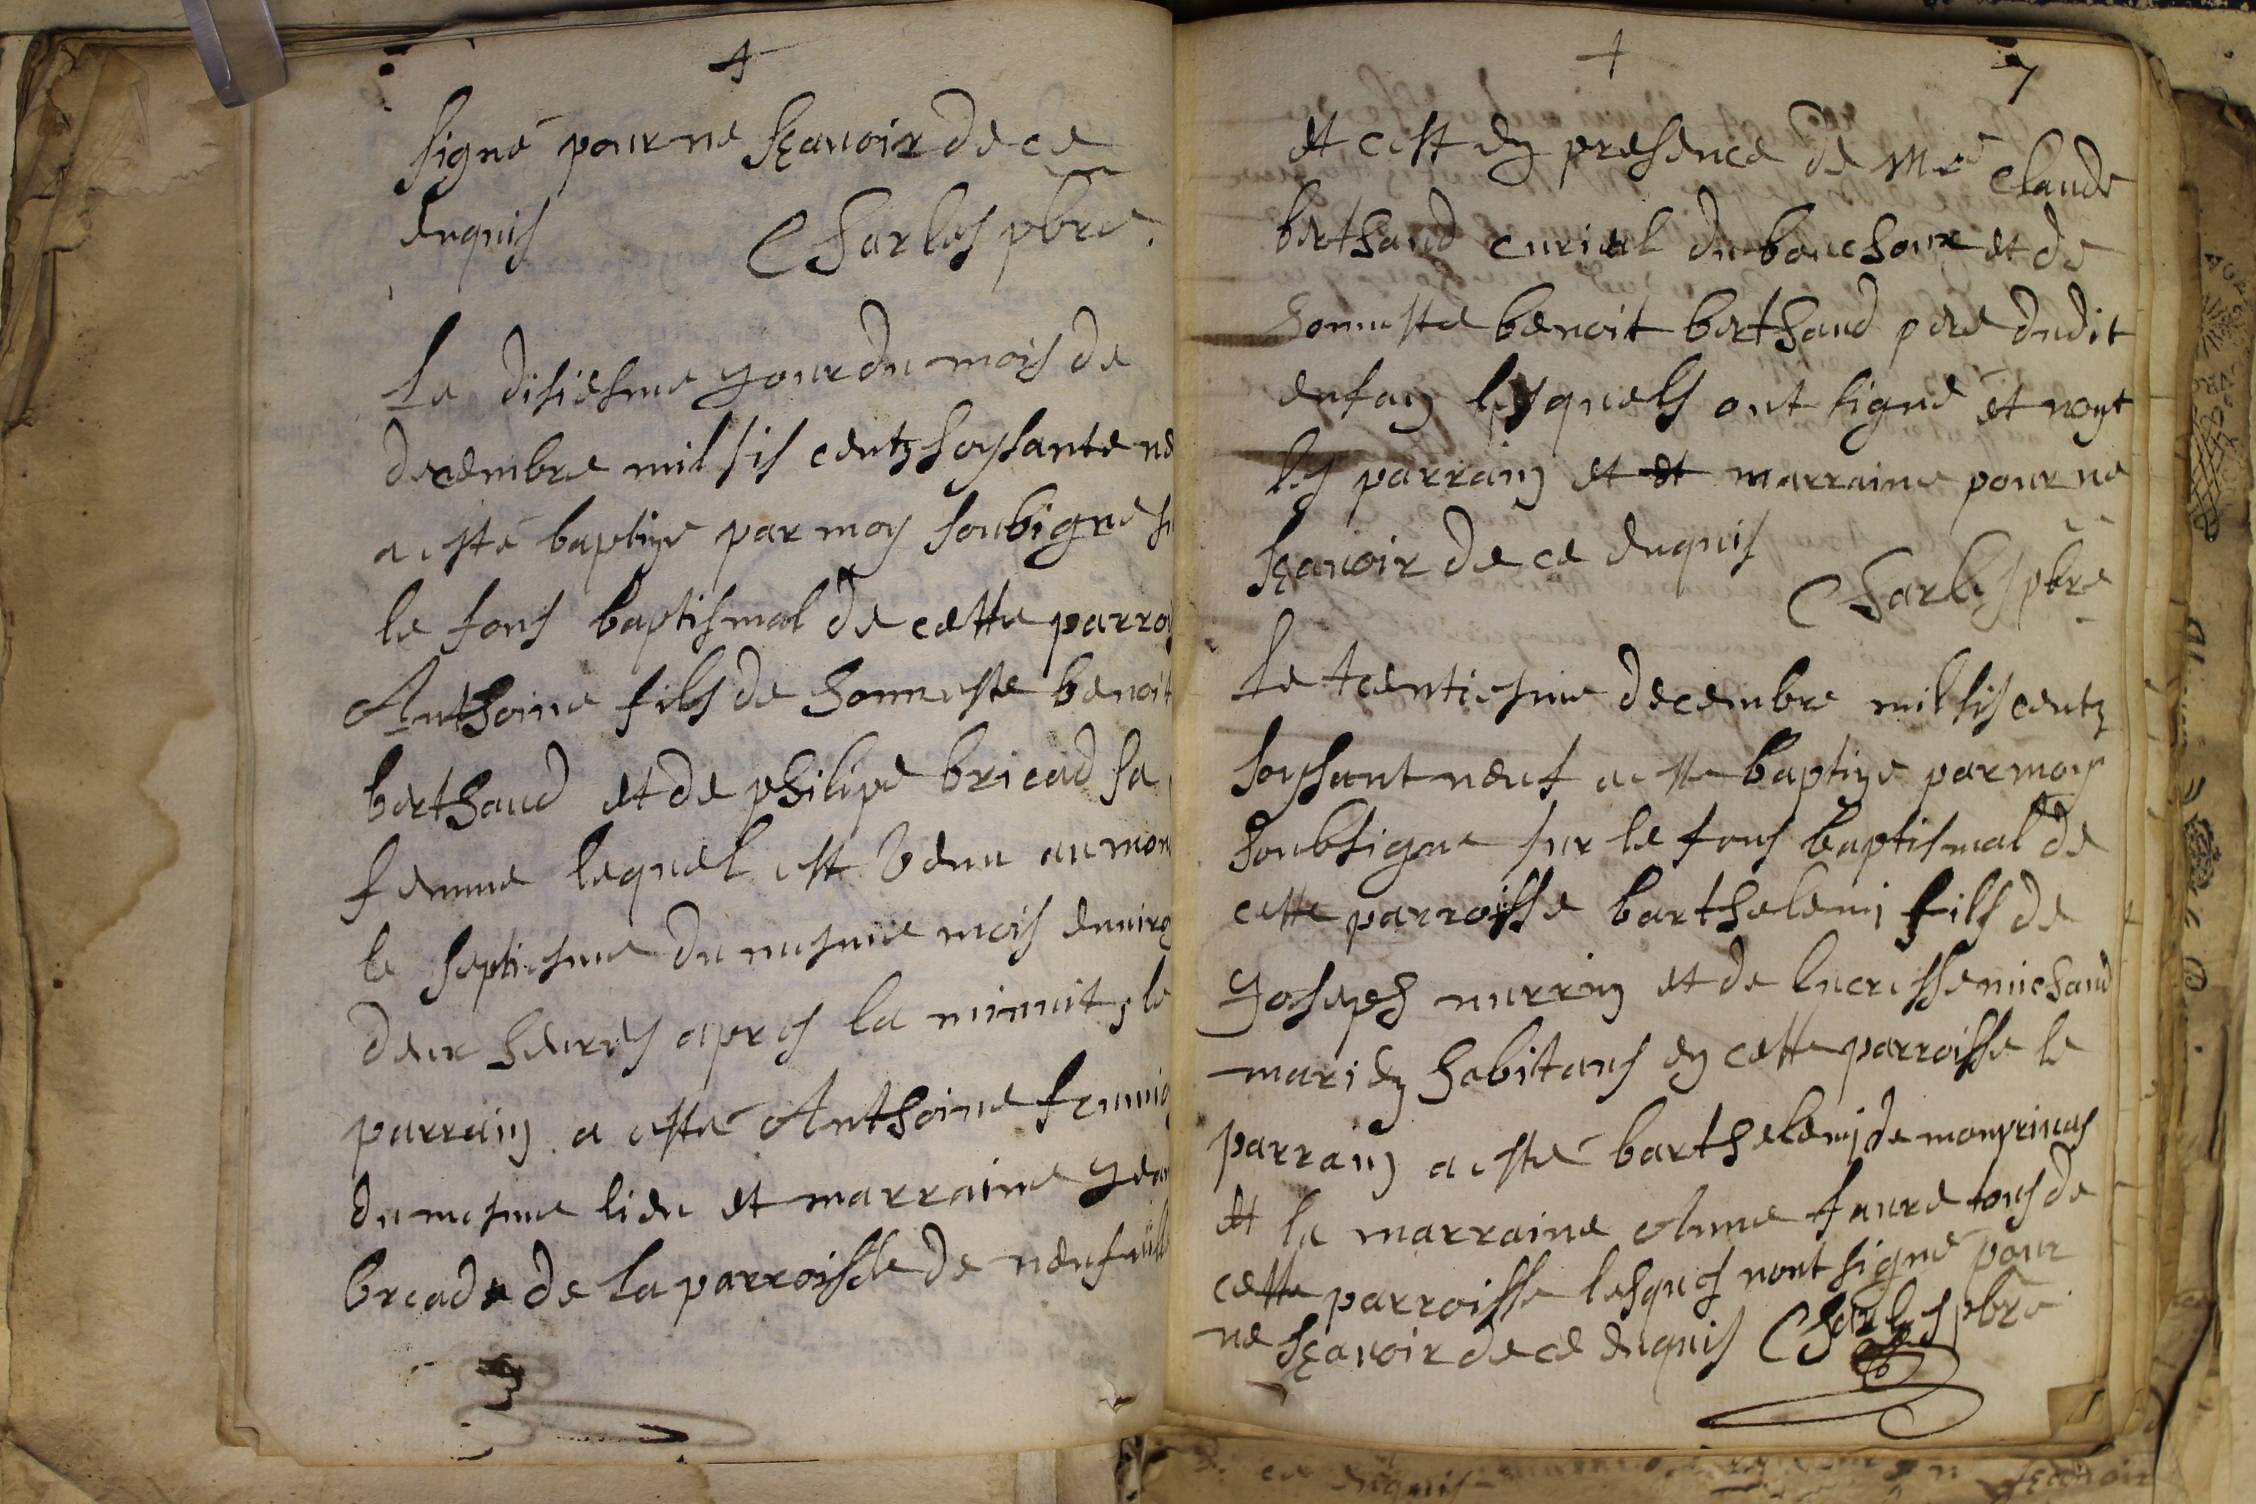 signé pour ne sçavoir de ce
enquis Charles pbre.
Le disiesme your du mois de
decembre mil sis centz soysante ne
a esté baptize par moy soubigne su
le fons baptismal de cette parroy
Anthoine fils de honneste benoit
berthaud et de philipe bricad sa
femme lequel est venu au mon
le septiesme du mesme mois enuiro
deux heures apres la minuit, le
parrain a esté Anthoine
du mesme lieu et marraine yea
bread de la parroisse de neufuill
7
et cest en presence de Mre Claude
berthaud curial du bouchoux et de
honneste benoit berthaud pere dudit
enfan lesquels ont signé et nont
les parrain et et marraine pour ne
sçauoir de ce enquis
Charles pbre
Le trentiesme decembre mil sis centz
soyssant neuf a este baptize par moy
soubsigne sur le fons baptismal de
cette parroisse barthelemi fils de
yoseph murrin et de lucresse michaud
marien habitans en cette parroisse le
parrain a esté barthelemi de
et la marraine Anne faure tous de
cette parroisse lesques nont signé pour
ne sçavoir de ce enquis Charles pbre